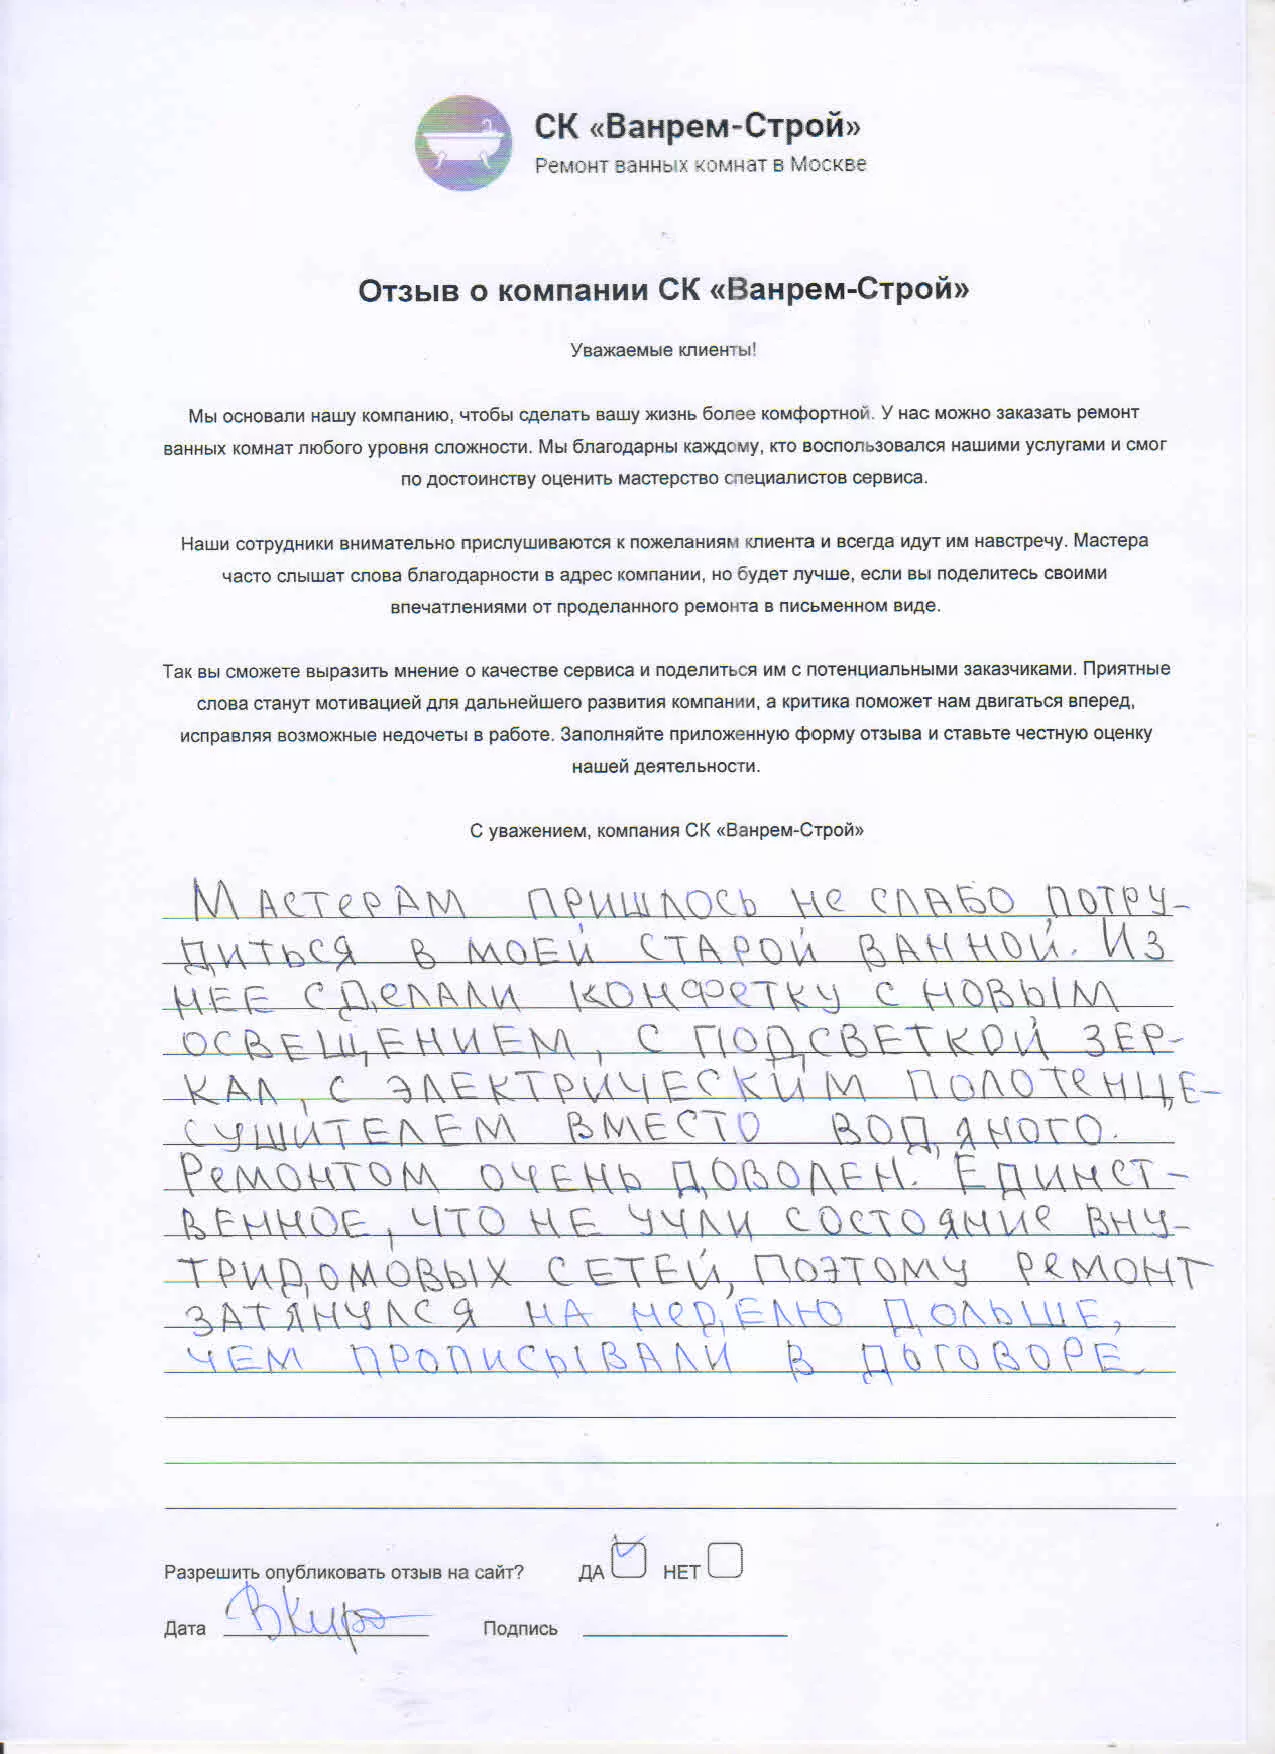 СК «Ванрем-Строй»
Ремонт ванных комнат в Москве
Отзыв о компании СК «Ванрем-Строй»
Уважаемые клиенты!
Мы основали нашу компанию, чтобы сделать вашу жизнь более комфортной. У нас можно заказать ремонт
ванных комнат любого уровня сложности. Мы благодарны каждому, кто воспользовался нашими услугами и смог
по достоинству оценить мастерство специалистов сервиса.
Наши сотрудники внимательно прислушиваются к пожеланиям клиента и всегда идут им навстречу. Мастера
часто слышат слова благодарности в адрес компании, но будет лучше, если вы поделитесь своими
впечатлениями от проделанного ремонта в письменном виде.
Так вы сможете выразить мнение о качестве сервиса и поделиться им с потенциальными заказчиками. Приятные
слова станут мотивацией для дальнейшего развития компании, а критика поможет нам двигаться вперед,
исправляя возможные недочеты в работе. Заполняйте приложенную форму отзыва и ставьте честную оценку
нашей деятельности.
С уважением, компания СК «Ванрем-Строй»
Мастерам пришлось не слабо потру-
диться в моей старой ванной. Из
нее сделали конфетку с новым
освещением, с подсветкой зер-
кал, с электрическим полотенце-
сушителем вместо водяного.
Ремонтом очень доволен. Единст-
венное, что не учли состояние вну-
тридомовых сетей, поэтому ремонт
затянулся на неделю дольше,
чем прописывали в договоре.
Разрешить опубликовать отзыв на сайт? ДА НЕТ
Дата Подпись